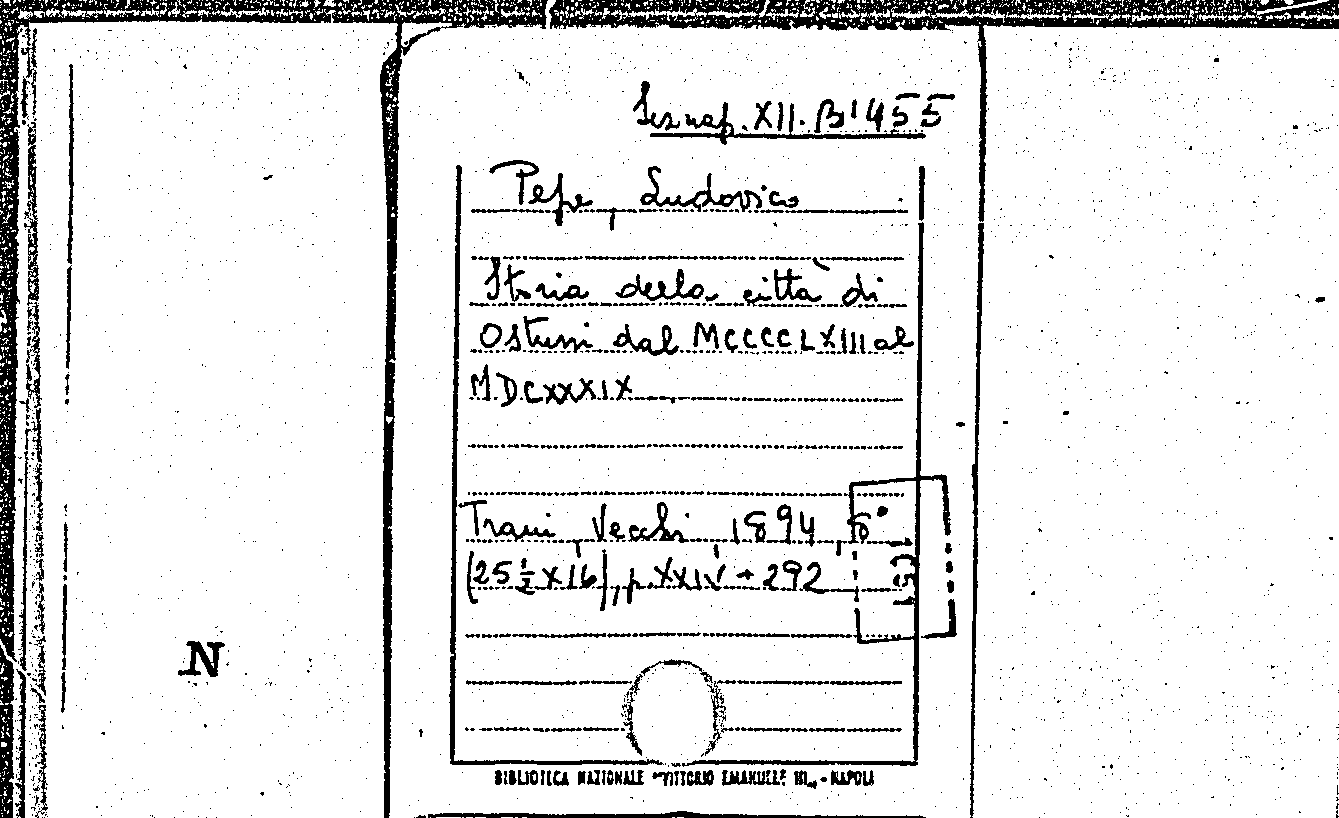 Sez. nap. XII. B 1455
Pepe, Ludovico
Storia della città di
Ostuni dal MCCCCLXIII al
MDCXXXIX
Trani, Vecchi, 1894, 8°
(25½ x 16), p. XXIV + 292
N
BIBLIOTECA NAZIONALE "VITTORIO EMANUELE III" - NAPOLI